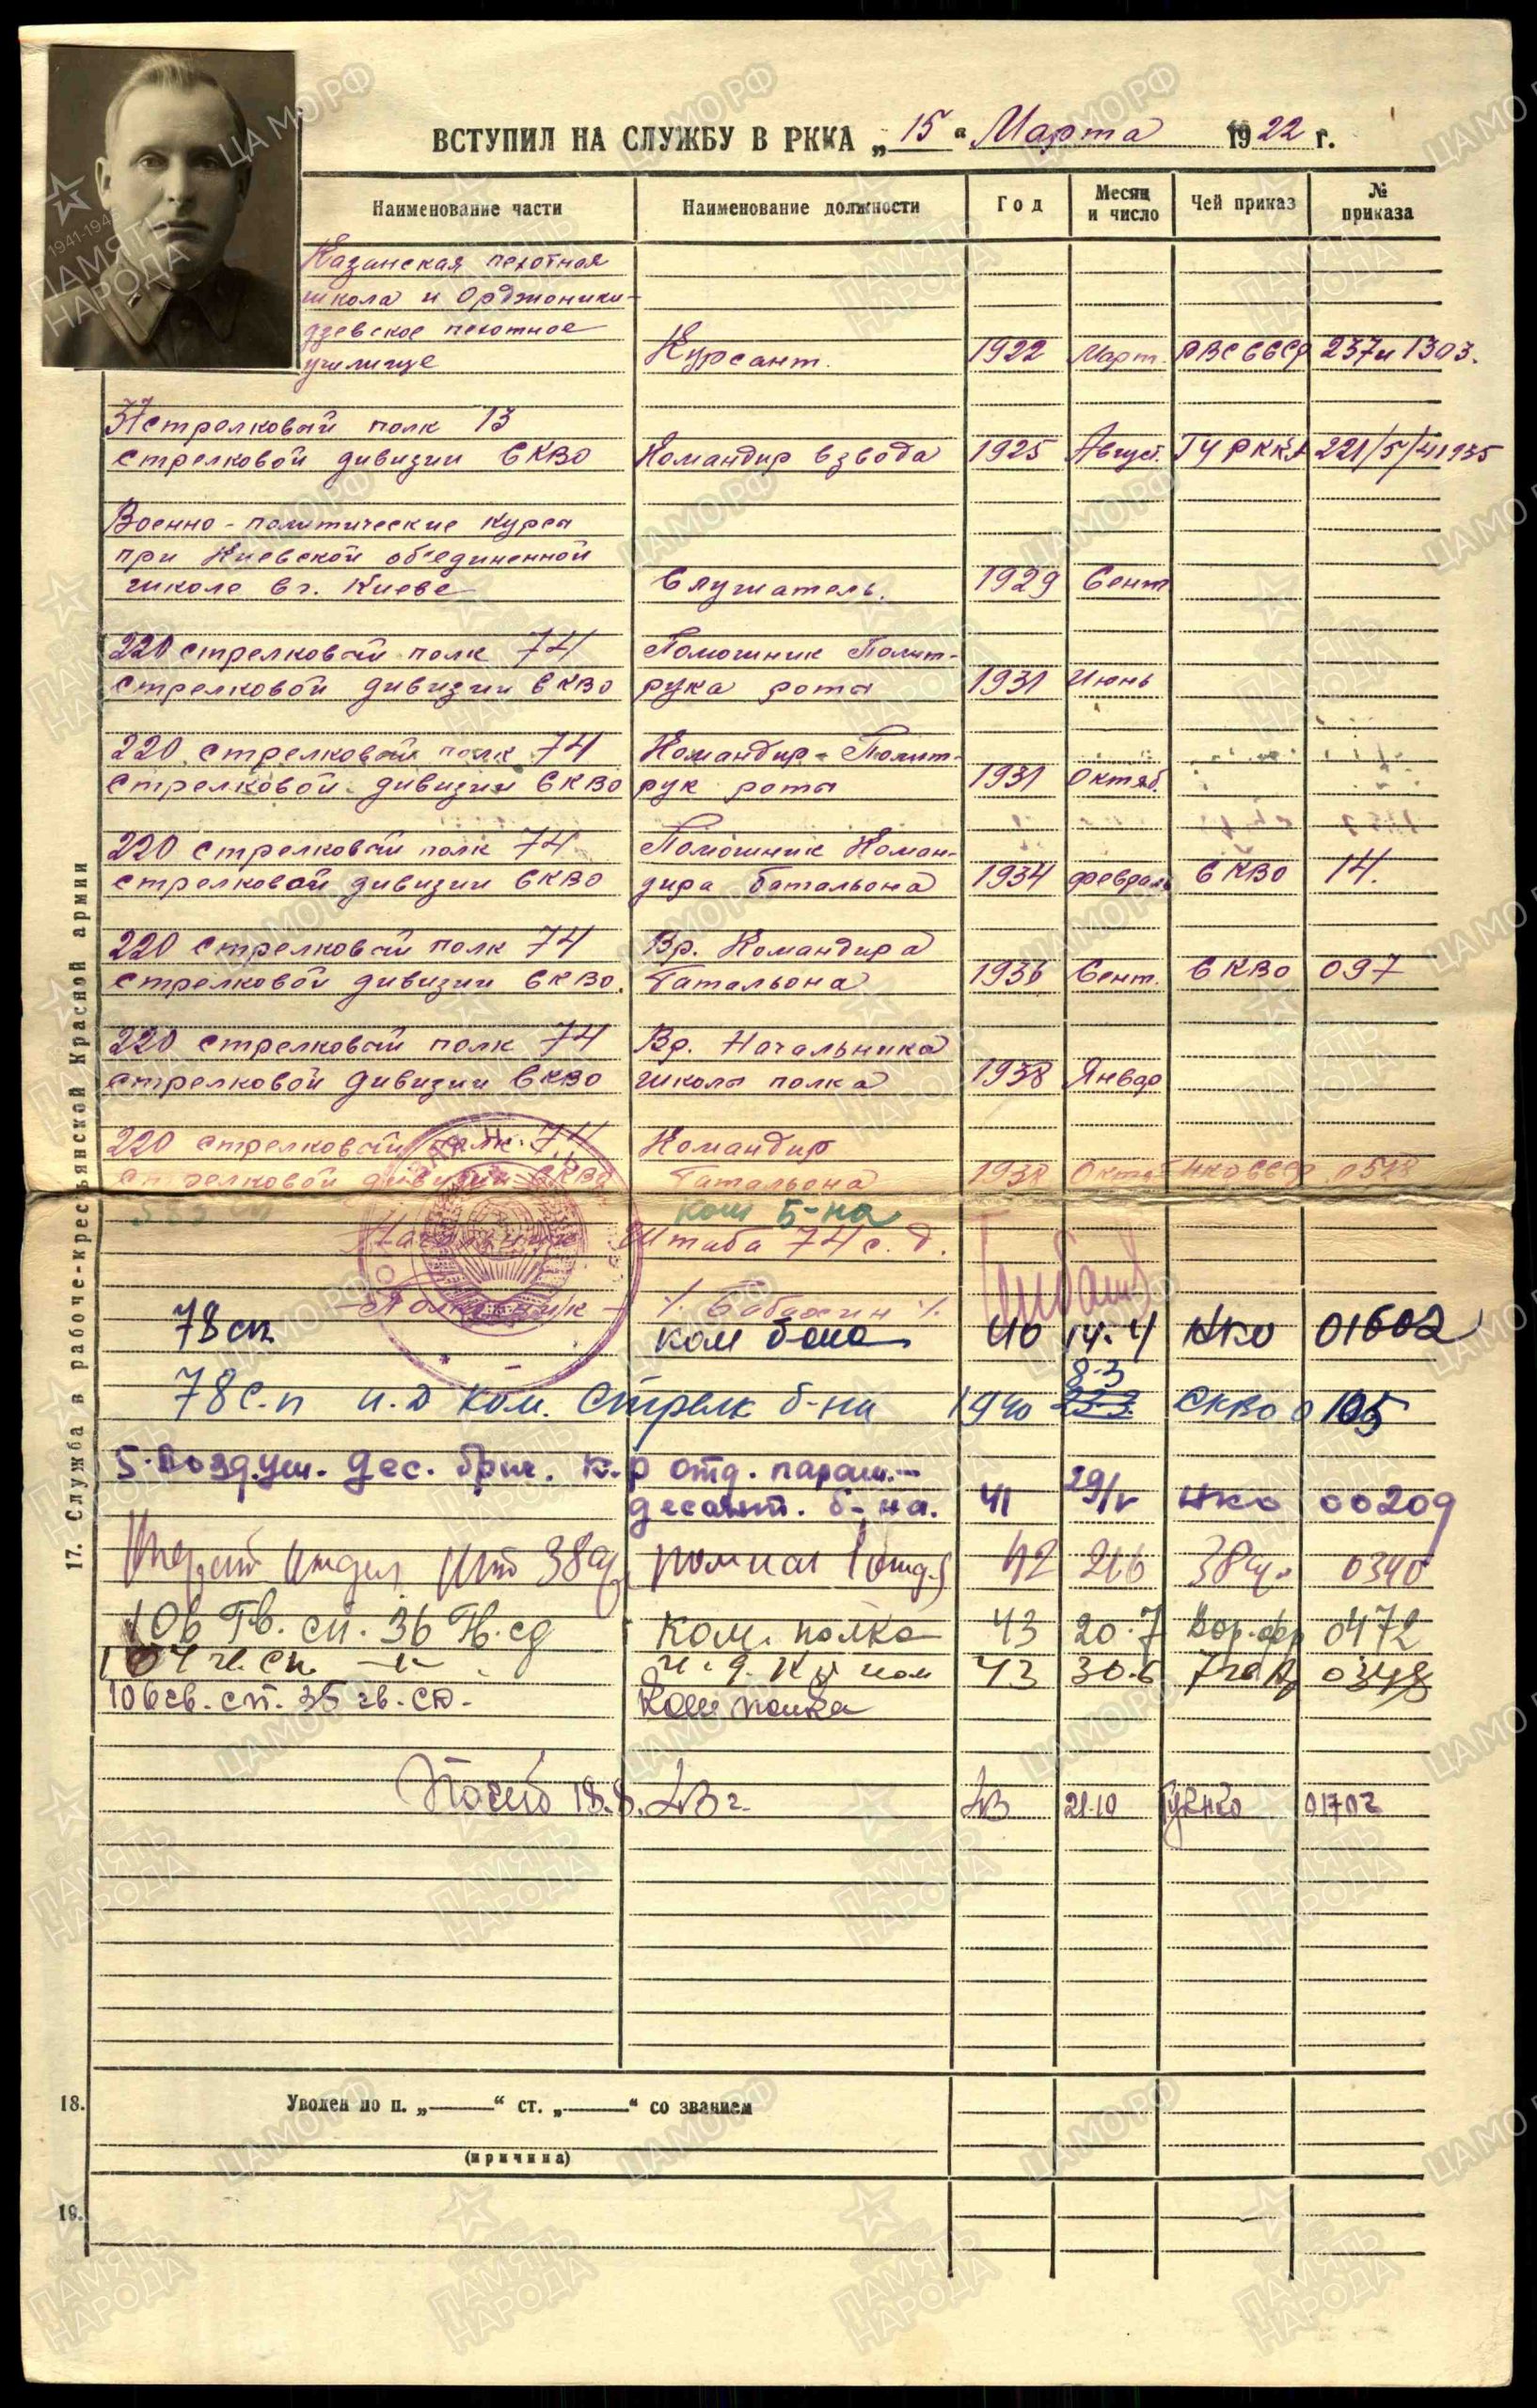 ВСТУПИЛ НА СЛУЖБУ В РККА „15“ Марта 1922 г.
Наименование части Наименование должности Год Месяц и число Чей приказ № приказа
Казанская пехотная
школа и Орджоники-
дзевское пехотное
училище Курсант. 1922 Март. РВС СССР 237 и 1303.
37 стрелковый полк 13
стрелковой дивизии СКВО Командир взвода 1925 Август. ГУ РККА
Военно-политические курсы
при Киевской объединенной
школе в г. Киеве Слушатель. 1929 Сент
220 стрелковый полк 74 Помошник Полит-
стрелковой дивизии СКВО рука роты 1931 Июнь
220 стрелковый полк 74 Командир-Полит-
стрелковой дивизии СКВО рук роты 1931 Октяб.
220 стрелковый полк 74 Помошник Коман-
стрелковой дивизии СКВО дира батальона 1934 февраль СКВО 14.
220 стрелковый полк 74 Вр. Командира
стрелковой дивизии СКВО. Батальона 1936 Сент. СКВО 097
220 стрелковый полк 74 Вр. Начальника
стрелковой дивизии СКВО школы полка 1938 Январ
220 стрелковый полк 74 Командир
стрелковой дивизии СКВО Батальона 1938 НКО СССР
ком б-на
Начальник Штаба 74 с.д.
Полковник
78 сп ком б-на 40 14.4 НКО 01602
78 с.п и.д ком. Стрелк б-на 1940 8.3 СКВО 0105
5. возд.уш. дес. бриг. к-р отд. параш.-
десант. б-на. 41 29/V НКО 00209
38а пом нач 1 отд. 42 21.6 38а. 0340
106 Гв. сп. 36 Гв. сд Ком. полка 43 20.7 Вор. фр 0472
104 гв. сп. —"— 43 30.6 7 гв А 0348
106 гв. сп. 36 гв. сд. Ком полка
Погиб 18.8.43 г. 43 21.10 ГУК НКО 01702
17. Служба в рабоче-крестьянской Красной армии
18. Уволен по п. „——“ ст. „——“ со званием
(причина)
19.
ЦАМО РФ
ПАМЯТЬ НАРОДА
1941-1945